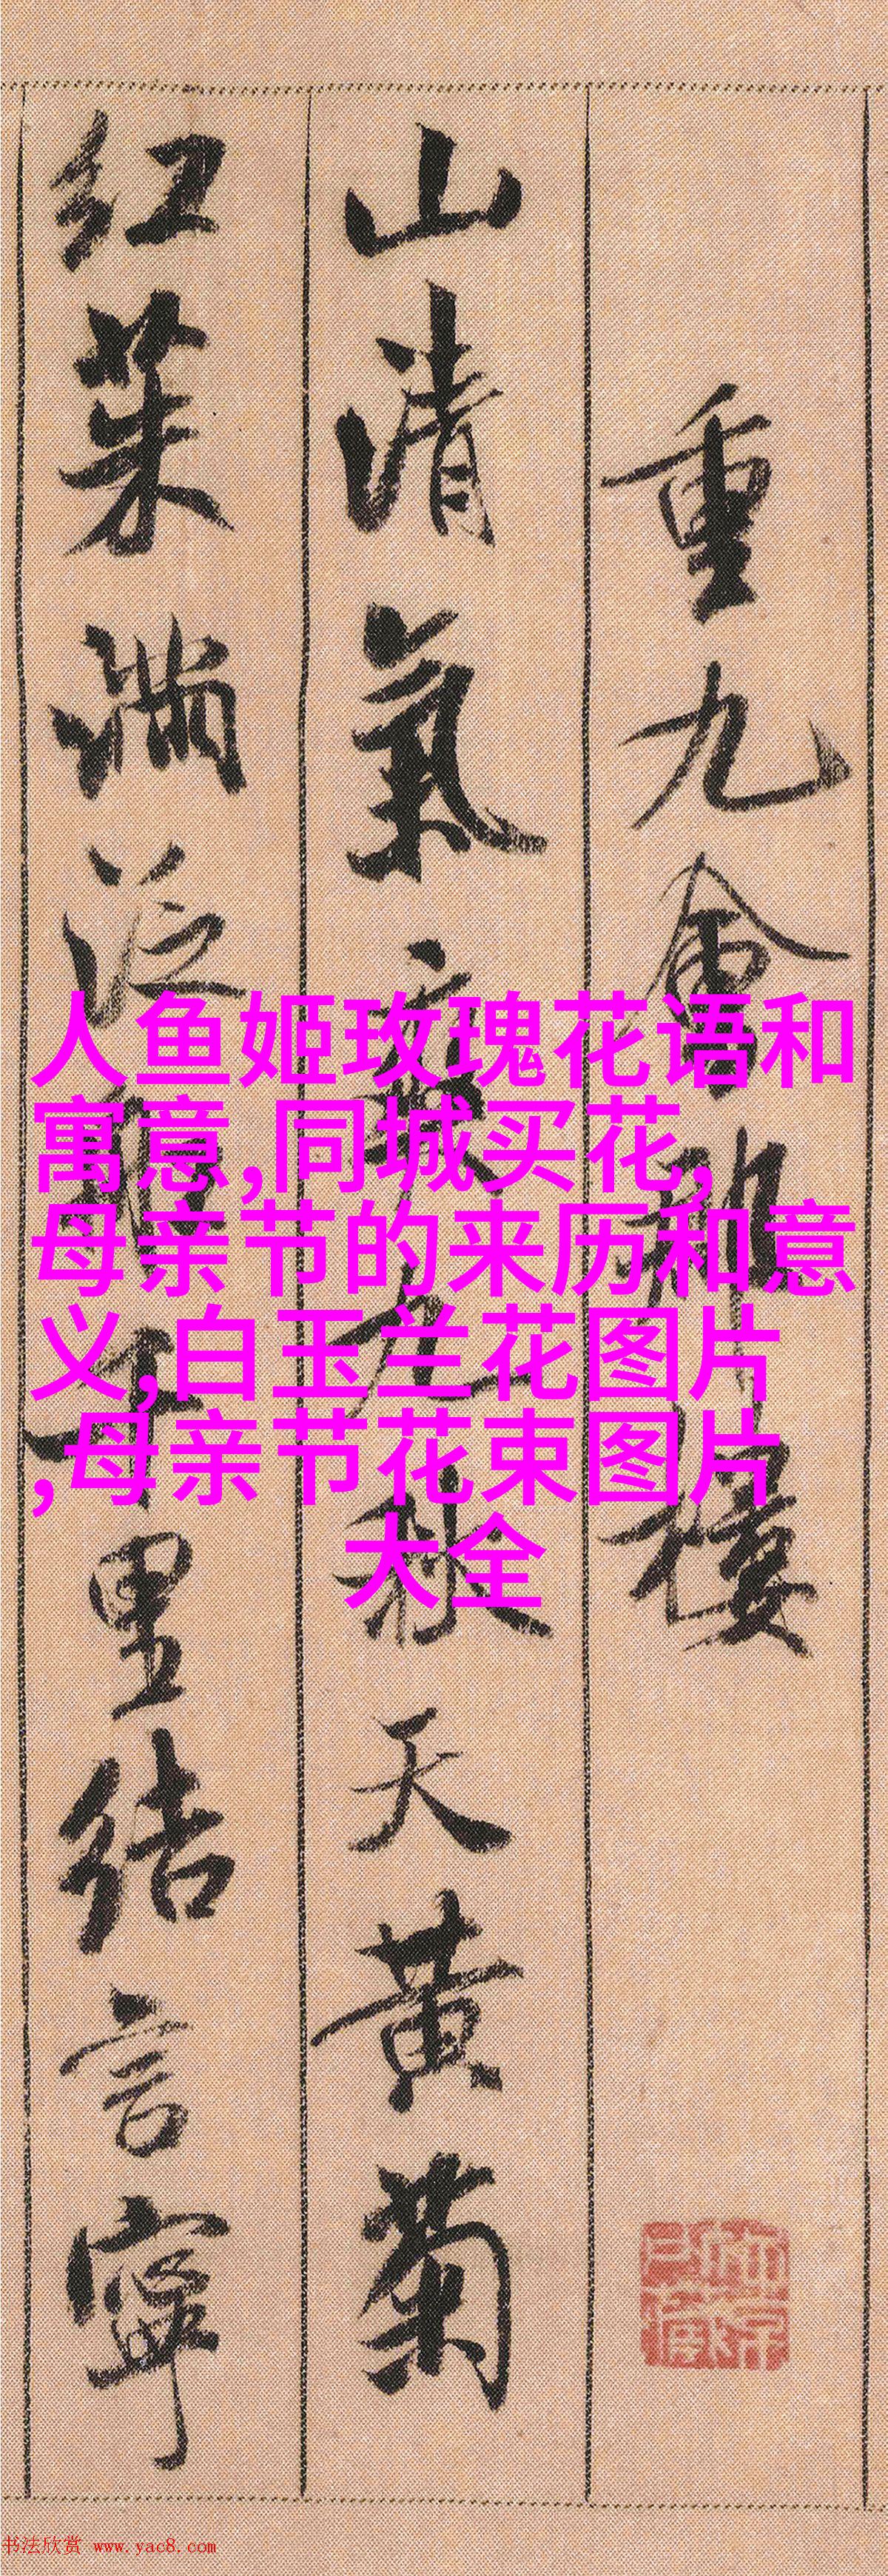 重九會郡樓
山清氣爽九秋天黄菊
紅茱滿泛船千里結言寧
人鱼姬玫瑰花语和
寓意,同城买花,
母亲节的来历和意
义,白玉兰花图片
,母亲节花束图片
大全
书法欣赏 www.yac8.com